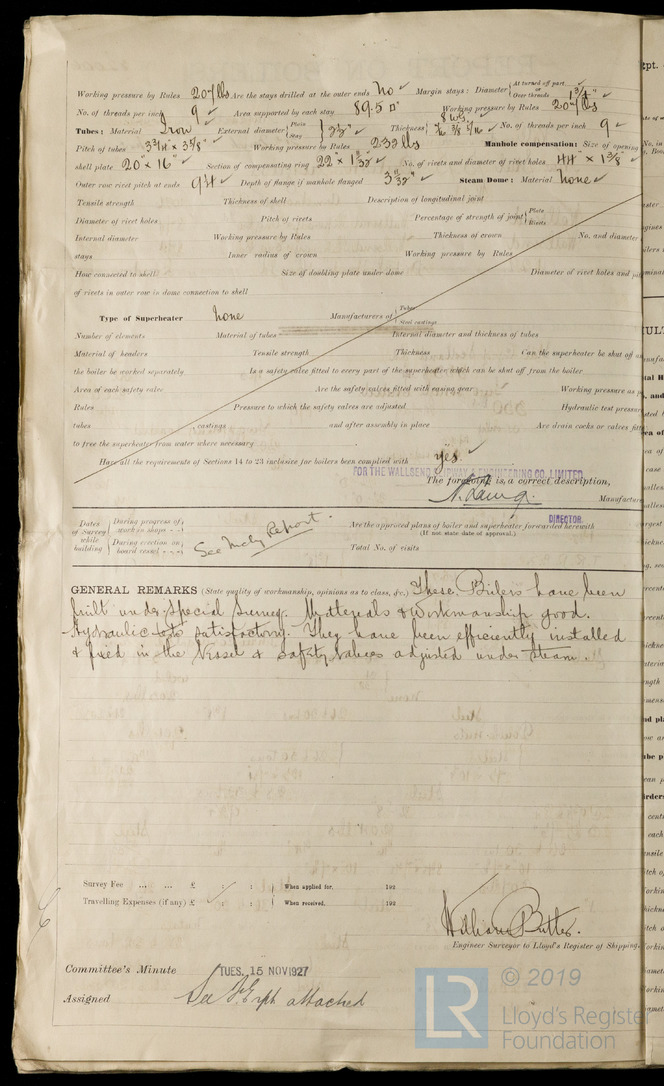 Working pressure by Rules 207 lbs Are the stays drilled at the outer ends No Margin stays: Diameter { At turned off part Over threads 1 3/4"
No. of threads per inch 9 Area supported by each stay 89.5 □" Working pressure by Rules 207 lbs
Tubes: Material Iron External diameter { Plain Stay Thickness No. of threads per inch 9
Pitch of tubes Working pressure by Rules 233 lbs Manhole compensation: Size of opening
shell plate 20" x 16" Section of compensating ring No. of rivets and diameter of rivet holes
Outer row rivet pitch at ends Depth of flange if manhole flanged Steam Dome: Material None
Tensile strength Thickness of shell Description of longitudinal joint
Diameter of rivet holes Pitch of rivets Percentage of strength of joint { Plate Rivets
Internal diameter Working pressure by Rules Thickness of crown No. and diameter
stays Inner radius of crown Working pressure by Rules
How connected to shell Size of doubling plate under dome Diameter of rivet holes and
of rivets in outer row in dome connection to shell
Type of Superheater None Manufacturers of { Tubes Steel castings
Number of elements Material of tubes Internal diameter and thickness of tubes
Material of headers Tensile strength Thickness Can the superheater be shut off
the boiler be worked separately Is a safety valve fitted to every part of the superheater which can be shut off from the boiler
Area of each safety valve Are the safety valves fitted with easing gear Working pressure as
Rules Pressure to which the safety valves are adjusted Hydraulic test pressure
tubes castings and after assembly in place Are drain cocks or valves
to free the superheater from water where necessary
Have all the requirements of Sections 14 to 23 inclusive for boilers been complied with yes
FOR THE WALLSEND SLIPWAY & ENGINEERING CO. LIMITED
The foregoing is a correct description,
Manufacture
DIRECTOR
Dates of Survey while building { During progress of work in shops During erection on board vessel See Mchy Report.
Are the approved plans of boiler and superheater forwarded herewith
(If not state date of approval.)
Total No. of visits
GENERAL REMARKS (State quality of workmanship, opinions as to class, &c.) These Boilers have been
built under Special Survey. Materials & workmanship good.
Hydraulic tests satisfactory. They have been efficiently installed
& fixed in the Vessel & safety valves adjusted under steam.
Survey Fee ... ... £ : : When applied for, 192
Travelling Expenses (if any) £ : : When received, 192
William Butler.
Engineer Surveyor to Lloyd's Register of Shipping
Committee's Minute TUES. 15 NOV 1927
Assigned See attached
LR © 2019
Lloyd's Register
Foundation